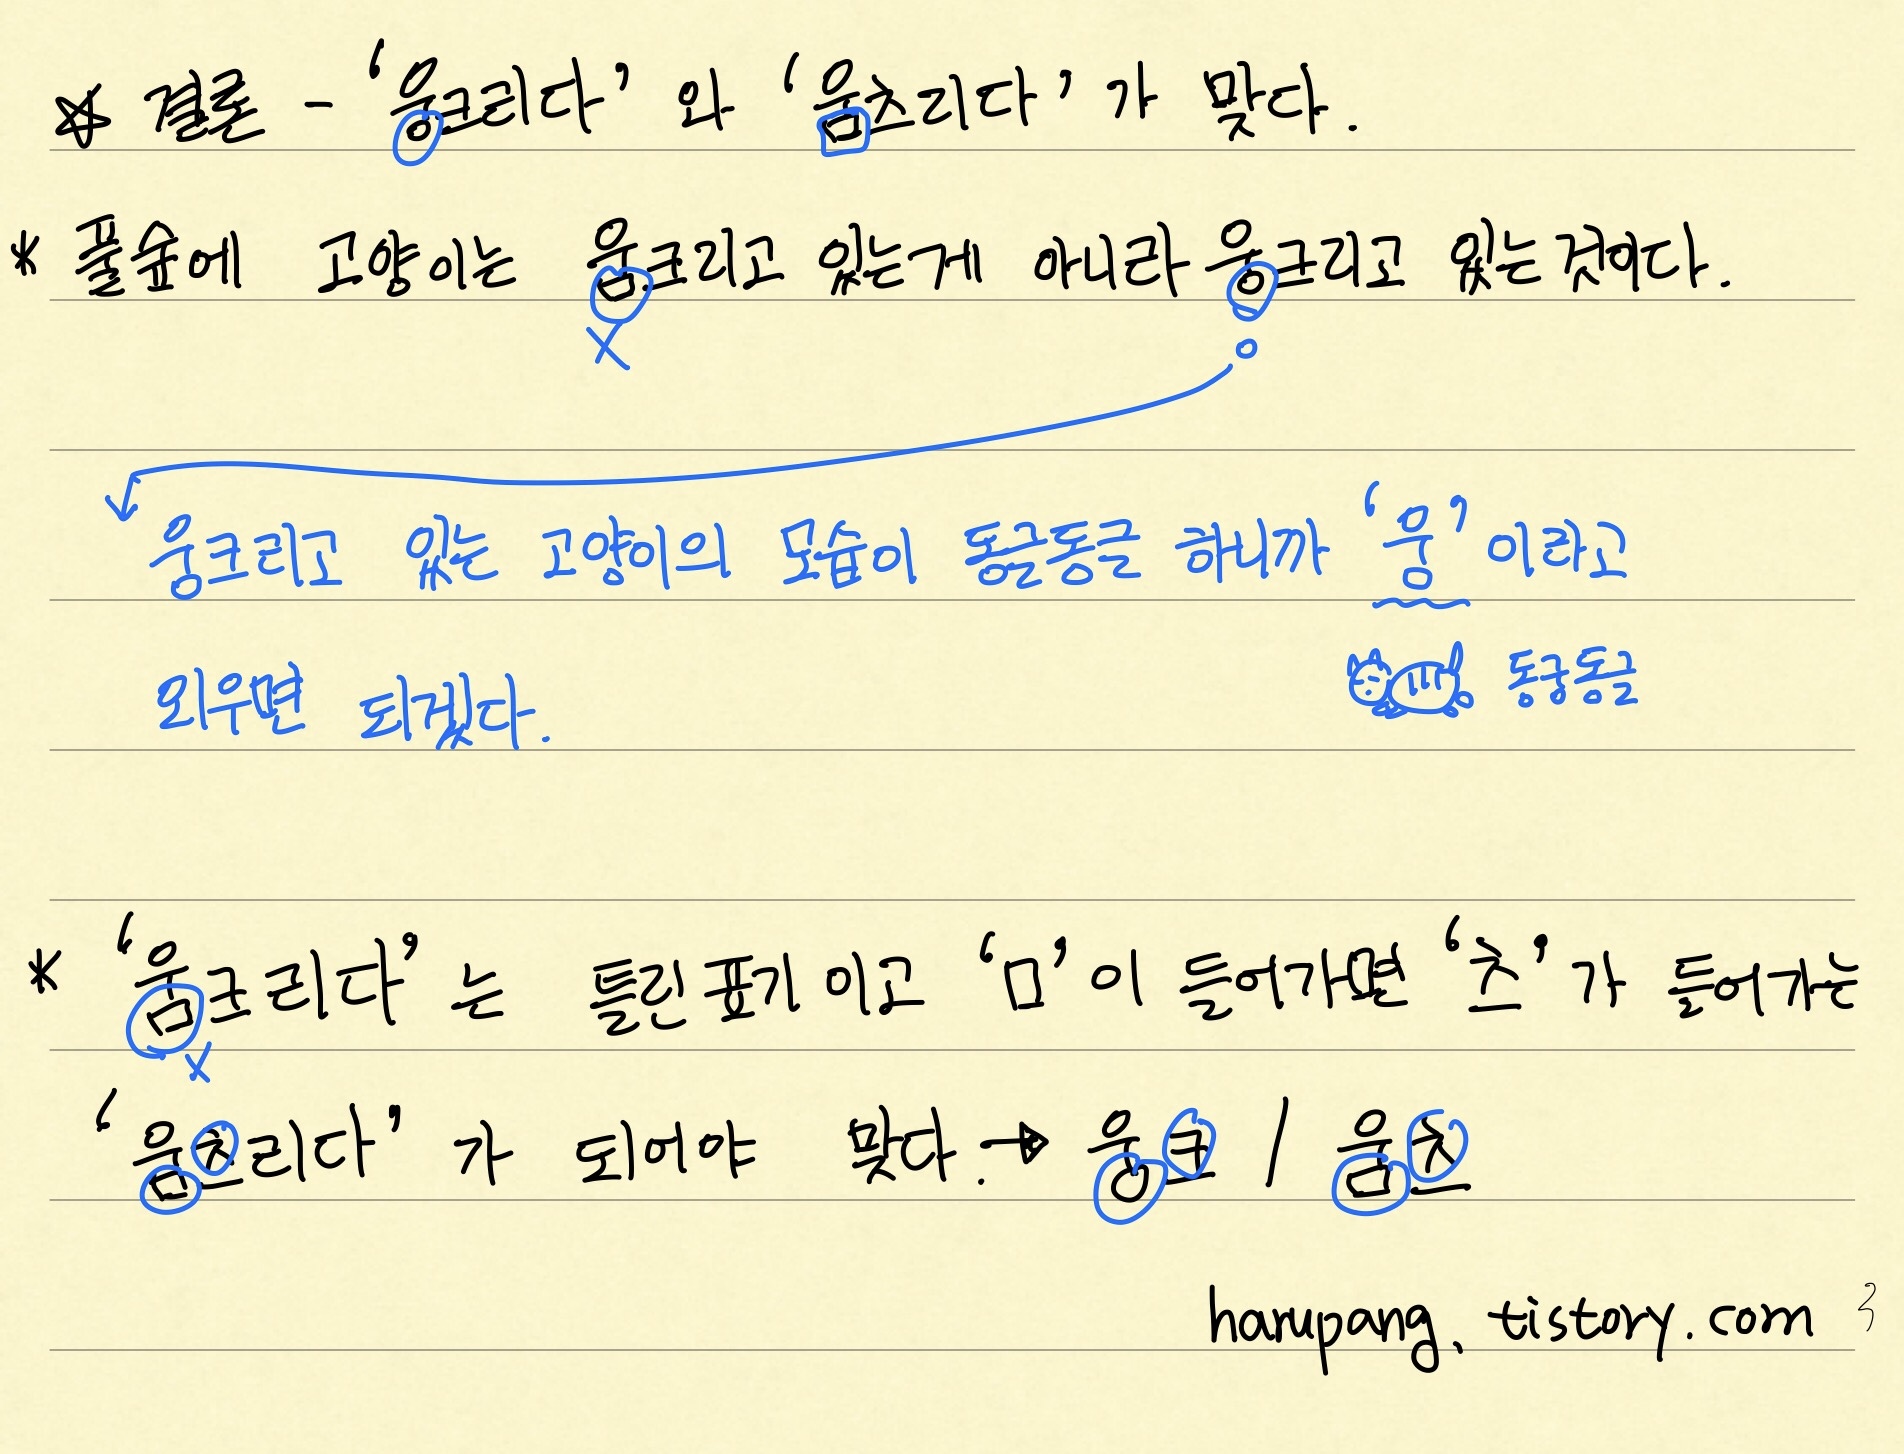 ☆ 결론 - '웅크리다' 와 '움츠리다' 가 맞다.
* 풀숲에 고양이는 움크리고 있는게 아니라 웅크리고 있는것이다.
X ○
웅크리고 있는 고양이의 모습이 동글동글 하니까 '웅' 이라고
외우면 되겠다. 동궁동글
* '움크리다' 는 틀린 표기 이고 'ㅁ' 이 들어가면 '츠' 가 들어가는
X
'움츠리다' 가 되어야 맞다. → 웅크 / 움츠
harupang. tistory. com